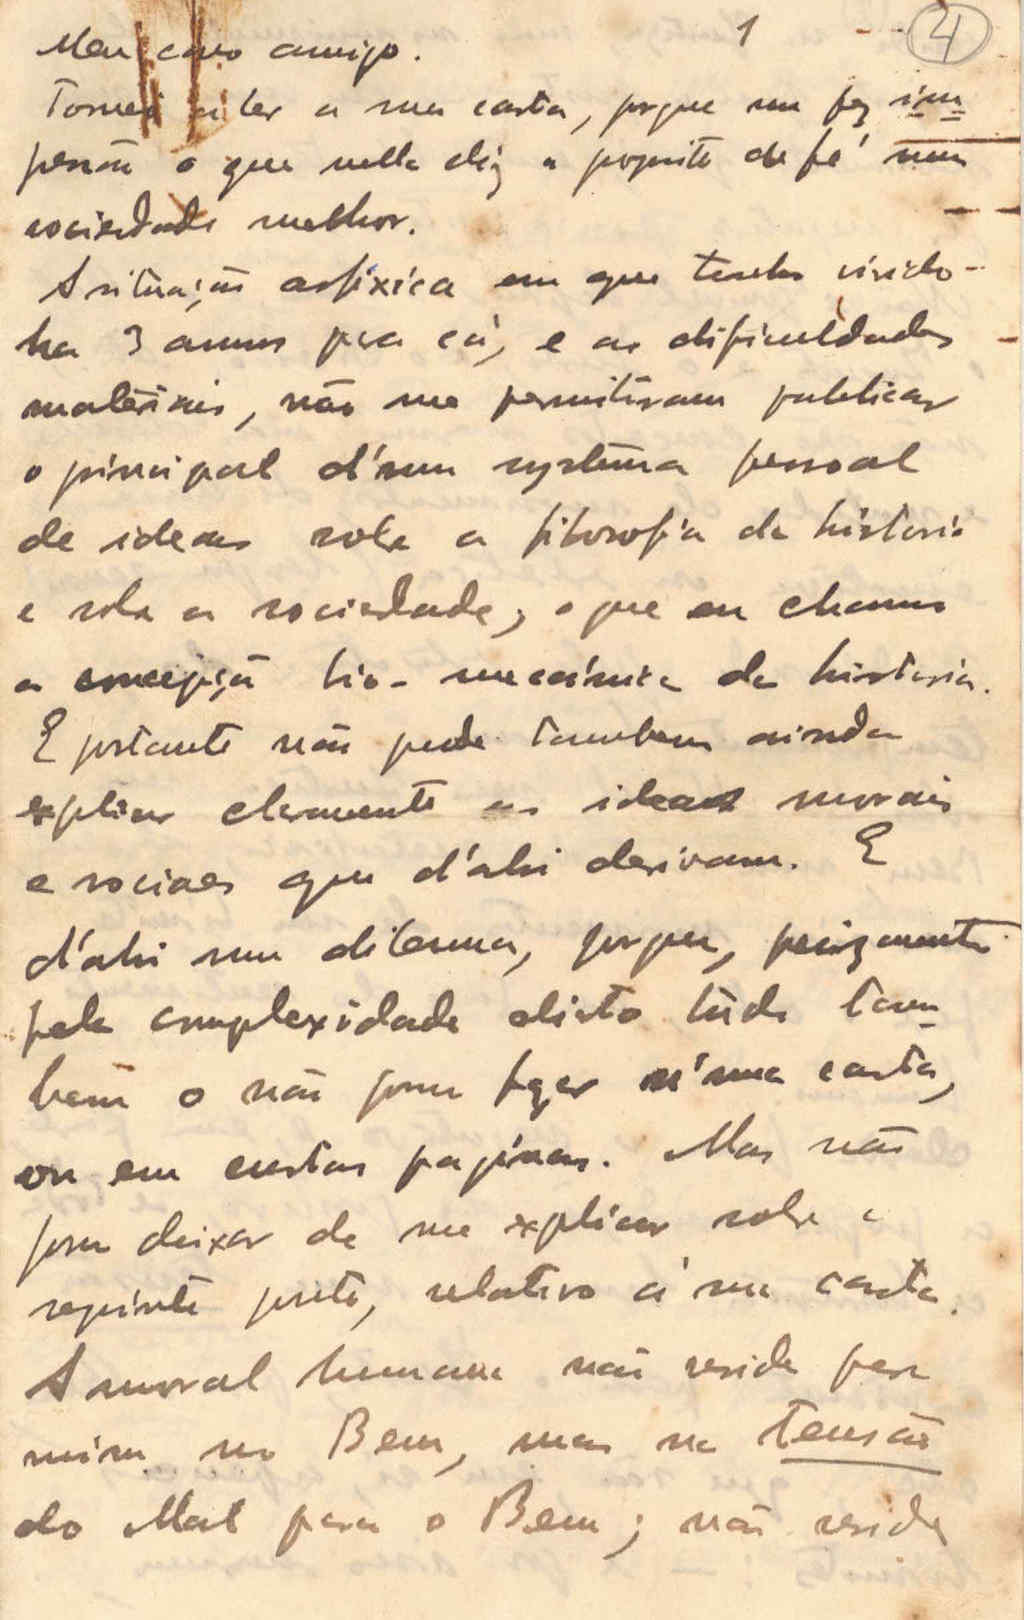 1 4
Meu caro amigo.
Tornei a ler a sua carta, porque me fez im-
pressão o que nella diz a proposito de fé numa
sociedade melhor.
A situação asfixica em que tenho vivido
ha 3 annos pra cá, e as dificuldades
materiais, não me permitiram publicar
o principal d'um systema pessoal
de ideas sobre a filosofia da historia
e sobre a sociedade, o que eu chamo
a concepção bio-mecánica da historia.
E portanto não pude tambem ainda
explicar claramente as ideas morais
e sociaes que d'ahi derivam. E
d'ahi um dilemma, porque, precizamente
pela complexidade disto tudo tam-
bem o não posso fazer n'uma carta,
ou em curtas paginas. Mas não
posso deixar de me explicar sobre o
seguinte ponto, relativo á sua carta.
A moral humana não reside para
mim no Bem, mas na Tensão
do Mal para o Bem; não reside